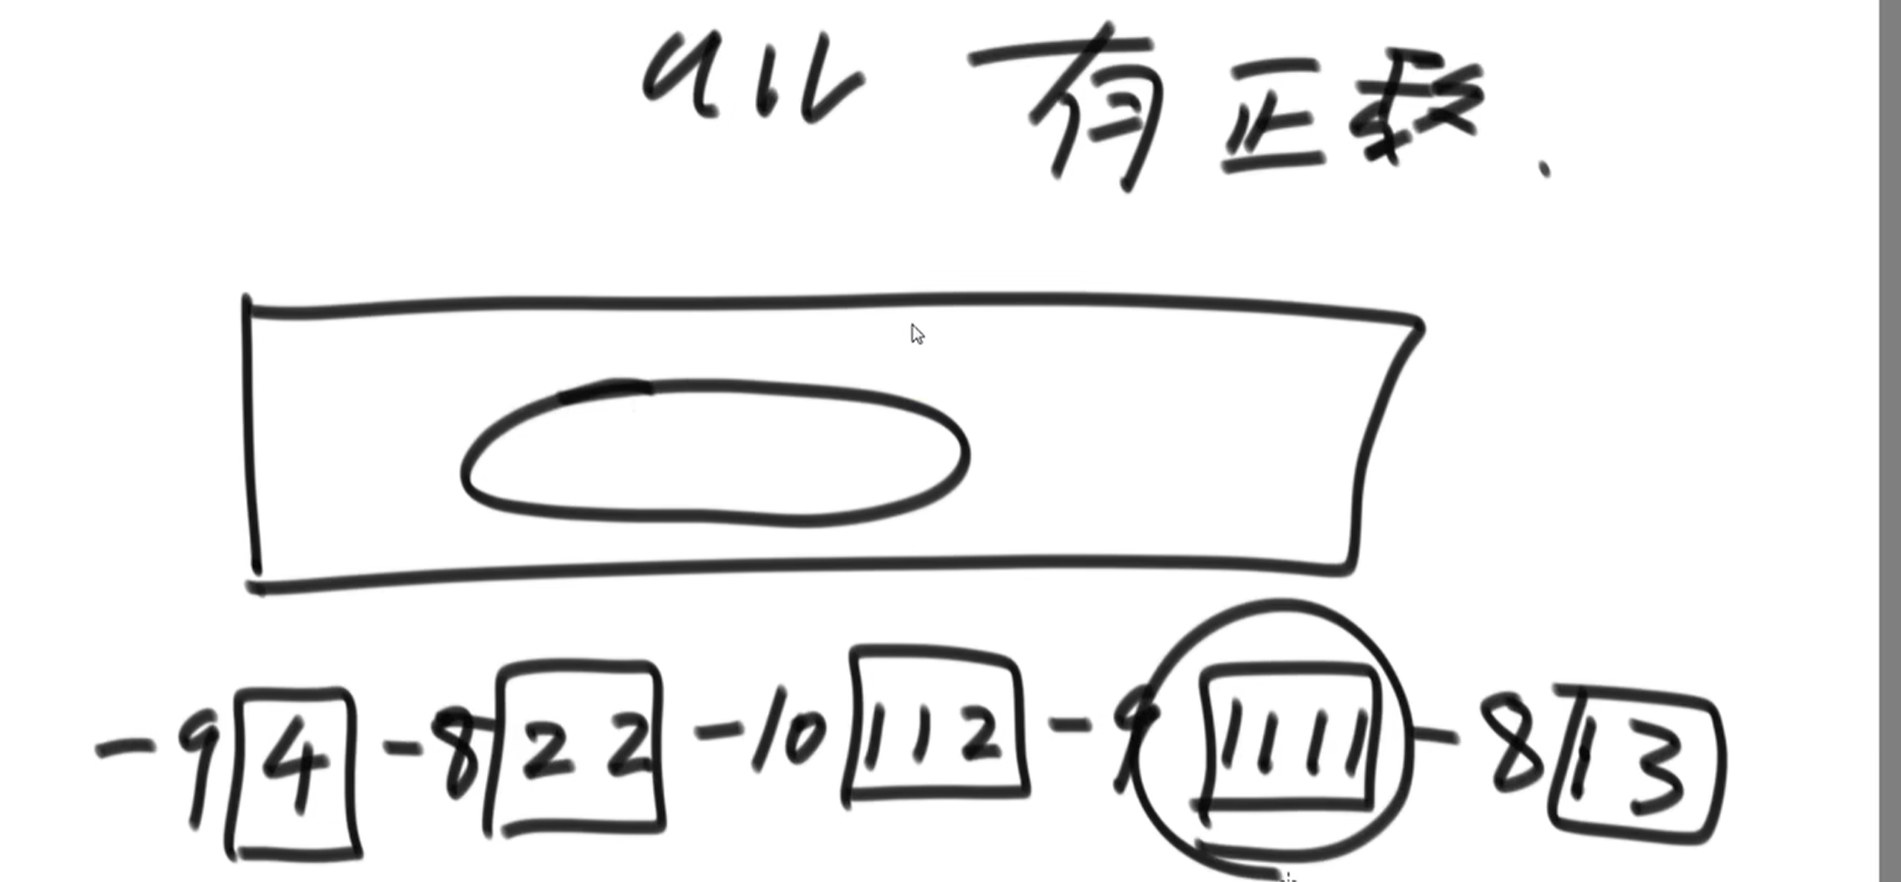 all 有正数.
-9 4 -8 22 -10 112 -9 1111 -8 13